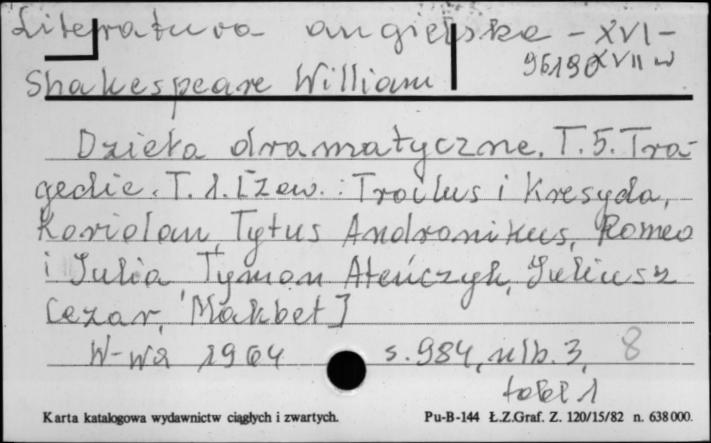 Literatura angielska - XVI -
96190 XVII w
Shakespeare William
Dzieła dramatyczne. T. 5. Tra-
gedie. T. 1. [Zaw.: Troilus i Kresyda,
Koriolan, Tytus Andronikus, Romeo
i Julia, Tymon Ateńczyk, Juliusz
Cezar, Makbet]
W-wa 1964 s. 984, nlb. 3, 8
tabl 1
Karta katalogowa wydawnictw ciągłych i zwartych. Pu-B-144 Ł.Z.Graf. Z. 120/15/82 n. 638000.